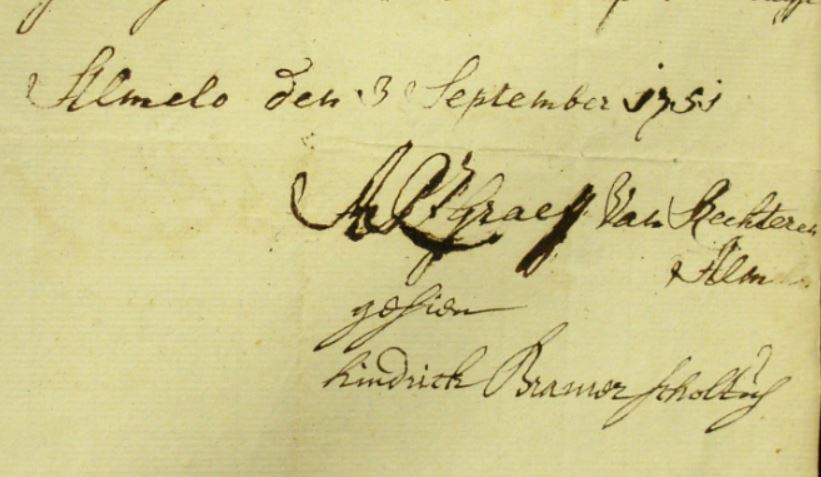 Almelo den 3 September 1751
Graeff Van Rechteren
Alm
gesien
hindrick Bramer scholtus